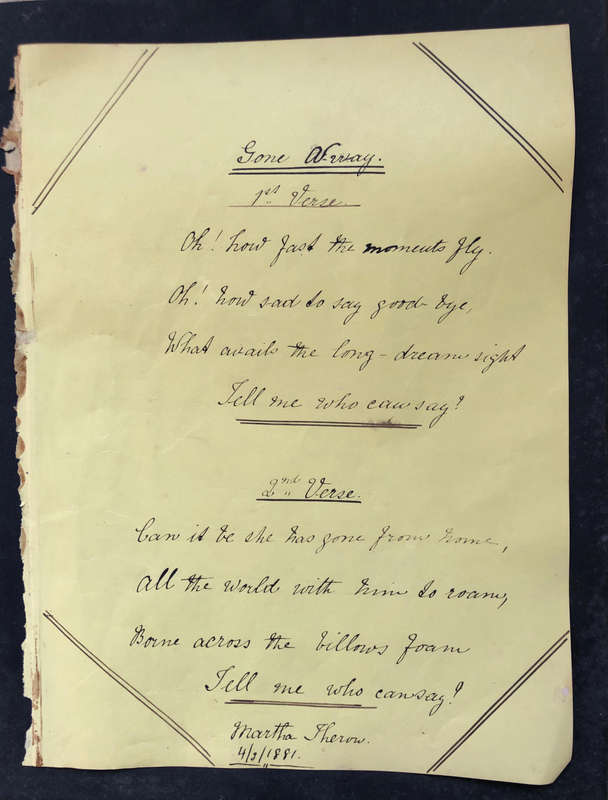 Gone Away.
1st Verse.
Oh! how fast the moments fly.
Oh! how sad to say good-bye,
What avails the long-dream sight
Tell me who can say?
2nd Verse.
Can it be she has gone from home,
All the world with him to roam,
Borne across the billows foam
Tell me who can say?
Martha Therow.
4/3/1881.